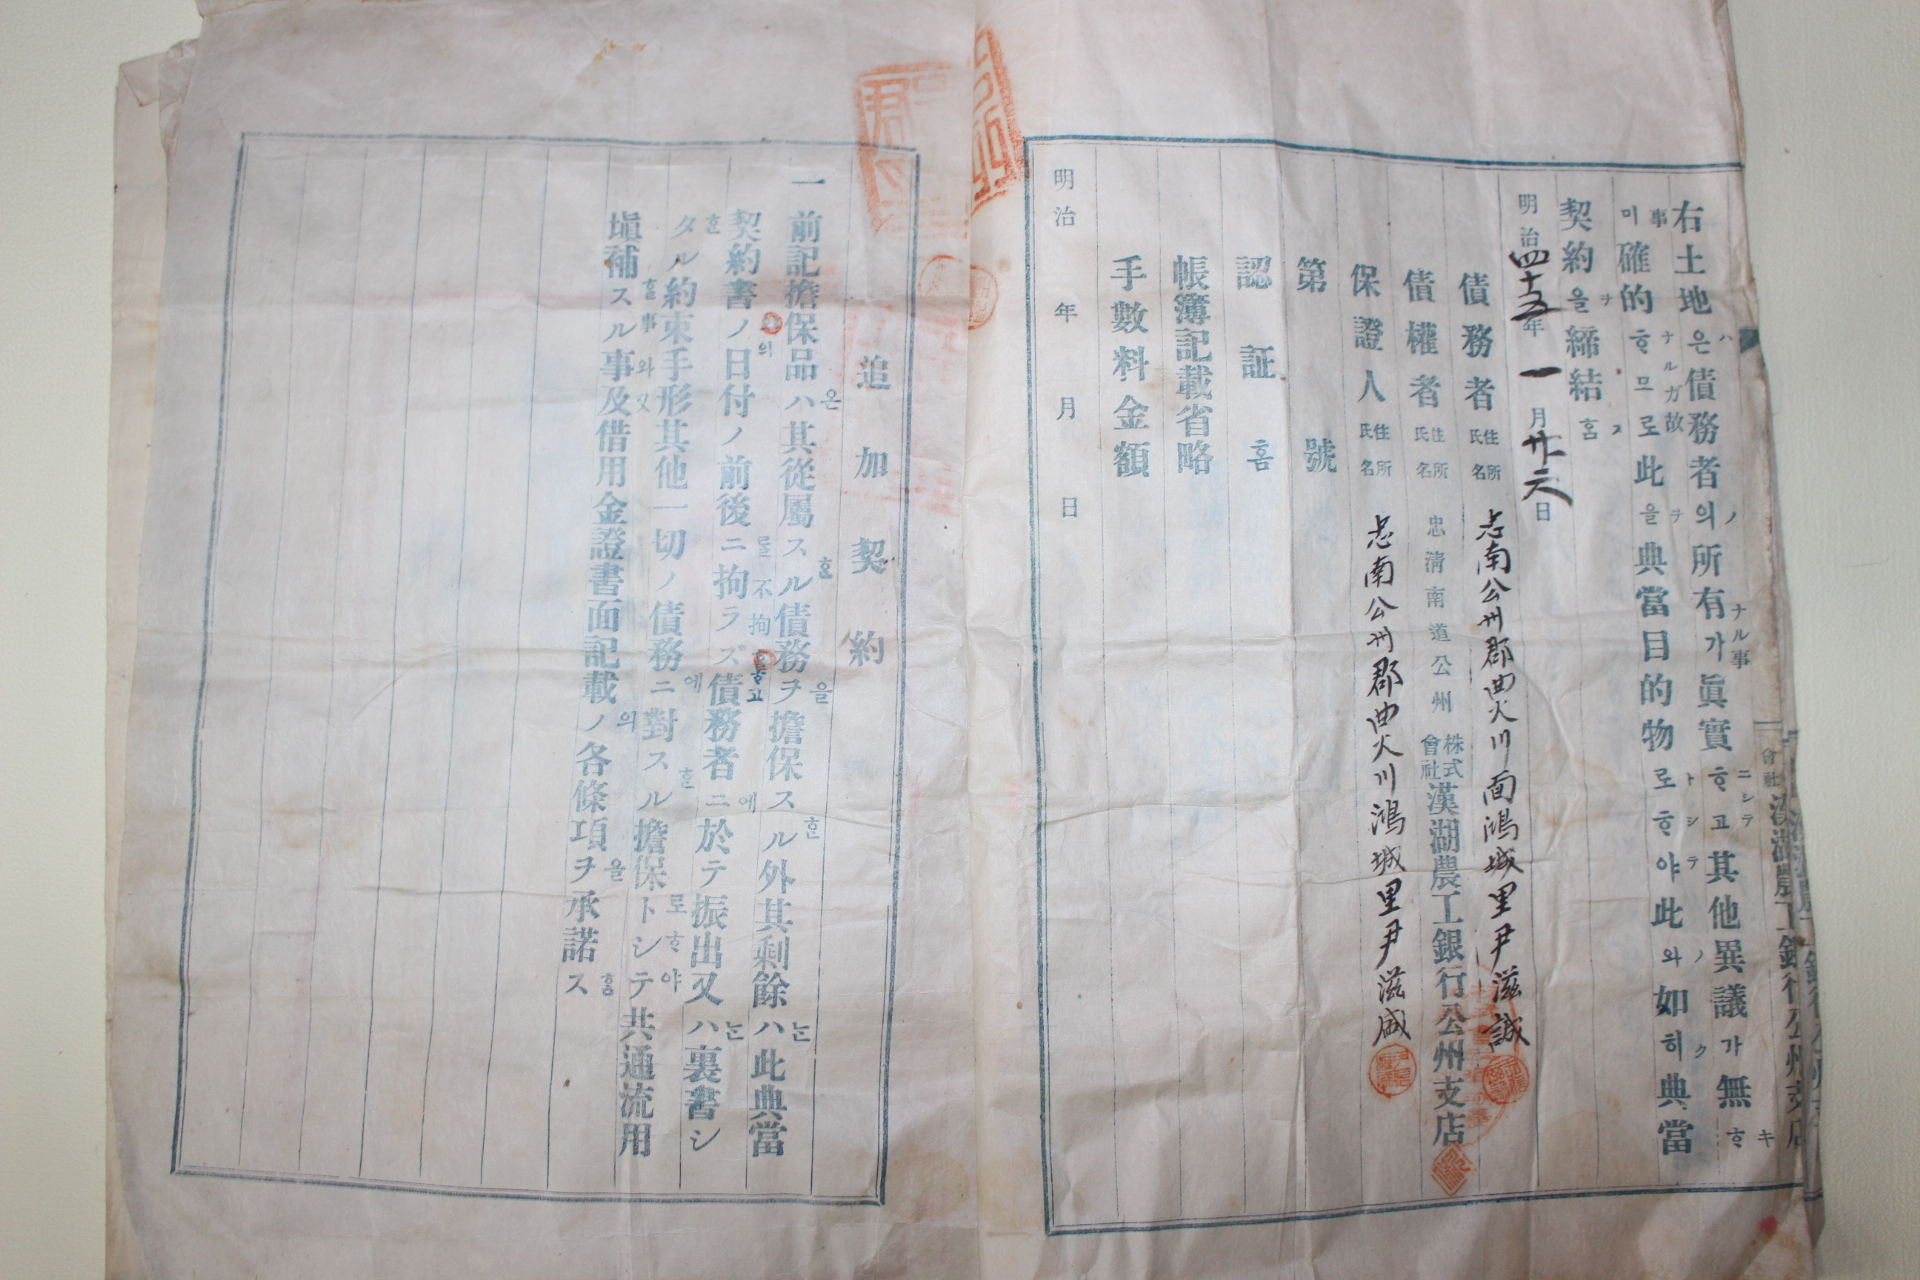 右土地은債務者의所有가眞實ᄒᆞ고其他異議가無ᄒᆞ
ハ ノ ナル事 ニシテ キ
미確的ᄒᆞ므로此을典當目的物로ᄒᆞ야此와如히典當
事 ナルガ故 ヲ トシテ ノ ク
契約을締結홈
ヲ ス
明治四十五年一月廿二日
債務者 住所氏名 忠南公州郡曲火川面鴻城里尹滋誠
債權者 住所氏名 忠淸南道公州 株式會社漢湖農工銀行公州支店
保證人 住所氏名 忠南公州郡曲火川鴻城里尹滋成
第 號
認証홈
帳簿記載省略
手數料金額
明治 年 月 日
追加契約
一前記擔保品ハ其從屬スル債務ヲ擔保スル外其剩餘ハ此典當
은 ᄒᆞᆫ 을 ᄒᆞᆫ ᄂᆞᆫ
契約書ノ日付ノ前後ニ拘ラズ債務者ニ於テ振出又ハ裏書シ
의 를 不拘ᄒᆞ고 에 ᄂᆞᆫ
タル約束手形其他一切ノ債務ニ對スル擔保トシテ共通流用
ᄒᆞᆫ 에 ᄒᆞᆫ 로ᄒᆞ야
塡補スル事及借用金證書面記載ノ各條項ヲ承諾ス
ᄒᆞᆯ事와又 의 을 홈